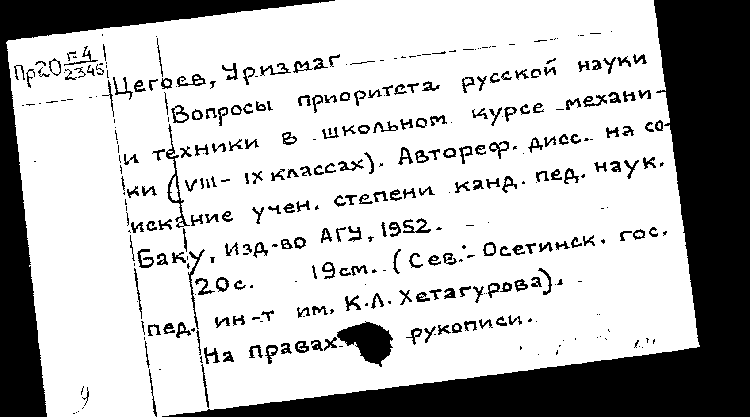 Пр20 Г-4/2345
Цегоев, Уризмаг
Вопросы приоритета русской науки
и техники в школьном курсе механи-
ки (VIII-IX классах). Автореф. дисс. на со-
искание учен. степени канд. пед. наук.
Баку, изд-во АГУ, 1952.
20с. 19см. (Сев.-Осетинск. гос.
пед. ин-т им. К.Л. Хетагурова).
На правах рукописи.